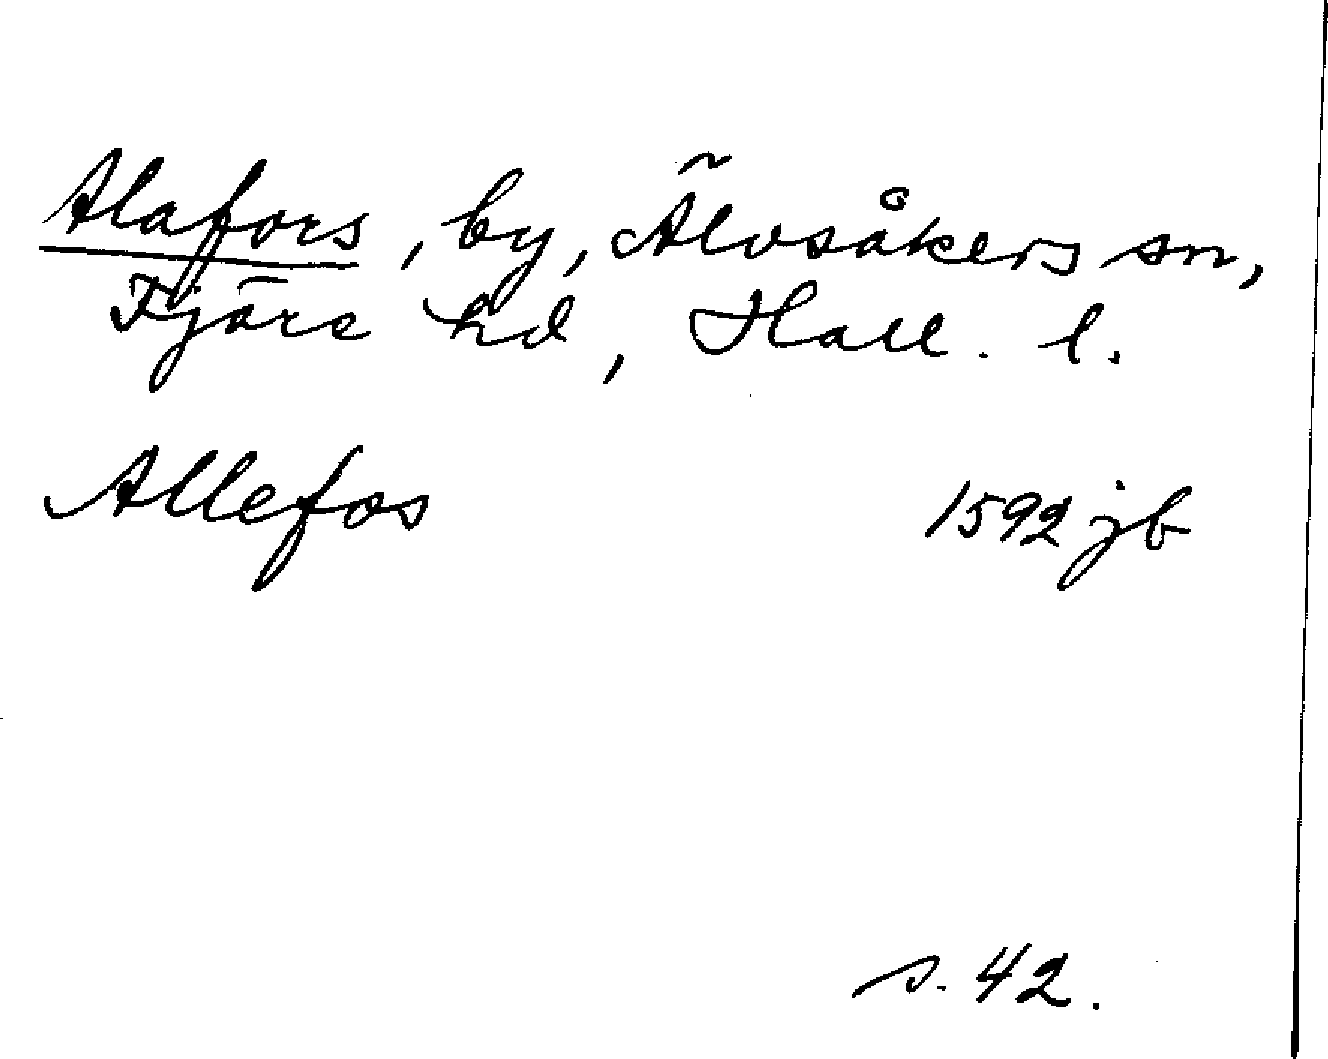 Alafors, by, Älvsåkers sn,
Fjäre hd, Hall. l.
Allefos 1592 jb
s. 42.